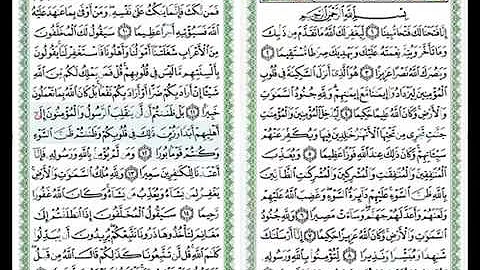 بِسْمِ اللَّهِ الرَّحْمَٰنِ الرَّحِيمِ
إِنَّا فَتَحْنَا لَكَ فَتْحًا مُّبِينًا ١ لِّيَغْفِرَ لَكَ اللَّهُ مَا تَقَدَّمَ مِن ذَنۢبِكَ
وَمَا تَأَخَّرَ وَيُتِمَّ نِعْمَتَهُ عَلَيْكَ وَيَهْدِيَكَ صِرَٰطًا مُّسْتَقِيمًا ٢
وَيَنصُرَكَ اللَّهُ نَصْرًا عَزِيزًا ٣ هُوَ الَّذِي أَنزَلَ السَّكِينَةَ فِي قُلُوبِ
الْمُؤْمِنِينَ لِيَزْدَادُوا إِيمَٰنًا مَّعَ إِيمَٰنِهِمْ وَلِلَّهِ جُنُودُ السَّمَٰوَٰتِ
وَالْأَرْضِ وَكَانَ اللَّهُ عَلِيمًا حَكِيمًا ٤ لِّيُدْخِلَ الْمُؤْمِنِينَ وَالْمُؤْمِنَٰتِ
جَنَّٰتٍ تَجْرِي مِن تَحْتِهَا الْأَنْهَٰرُ خَٰلِدِينَ فِيهَا وَيُكَفِّرَ عَنْهُمْ
سَيِّـَٔاتِهِمْ وَكَانَ ذَٰلِكَ عِندَ اللَّهِ فَوْزًا عَظِيمًا ٥ وَيُعَذِّبَ
الْمُنَٰفِقِينَ وَالْمُنَٰفِقَٰتِ وَالْمُشْرِكِينَ وَالْمُشْرِكَٰتِ الظَّانِّينَ
بِاللَّهِ ظَنَّ السَّوْءِ عَلَيْهِمْ دَائِرَةُ السَّوْءِ وَغَضِبَ اللَّهُ عَلَيْهِمْ
وَلَعَنَهُمْ وَأَعَدَّ لَهُمْ جَهَنَّمَ وَسَاءَتْ مَصِيرًا ٦ وَلِلَّهِ جُنُودُ
السَّمَٰوَٰتِ وَالْأَرْضِ وَكَانَ اللَّهُ عَزِيزًا حَكِيمًا ٧ إِنَّا أَرْسَلْنَٰكَ
شَٰهِدًا وَمُبَشِّرًا وَنَذِيرًا ٨ لِّتُؤْمِنُوا بِاللَّهِ وَرَسُولِهِ
فَمَن نَّكَثَ فَإِنَّمَا يَنكُثُ عَلَىٰ نَفْسِهِ وَمَنْ أَوْفَىٰ بِمَا عَٰهَدَ عَلَيْهُ
اللَّهَ فَسَيُؤْتِيهِ أَجْرًا عَظِيمًا ١٠ سَيَقُولُ لَكَ الْمُخَلَّفُونَ
مِنَ الْأَعْرَابِ شَغَلَتْنَا أَمْوَٰلُنَا وَأَهْلُونَا فَاسْتَغْفِرْ لَنَا يَقُولُونَ
بِأَلْسِنَتِهِم مَّا لَيْسَ فِي قُلُوبِهِمْ قُلْ فَمَن يَمْلِكُ لَكُم مِّنَ اللَّهِ
شَيْـًٔا إِنْ أَرَادَ بِكُمْ ضَرًّا أَوْ أَرَادَ بِكُمْ نَفْعًا بَلْ كَانَ اللَّهُ بِمَا تَعْمَلُونَ
خَبِيرًا ١١ بَلْ ظَنَنتُمْ أَن لَّن يَنقَلِبَ الرَّسُولُ وَالْمُؤْمِنُونَ إِلَىٰ
أَهْلِيهِمْ أَبَدًا وَزُيِّنَ ذَٰلِكَ فِي قُلُوبِكُمْ وَظَنَنتُمْ ظَنَّ السَّوْءِ
وَكُنتُمْ قَوْمًا بُورًا ١٢ وَمَن لَّمْ يُؤْمِنۢ بِاللَّهِ وَرَسُولِهِ فَإِنَّا
أَعْتَدْنَا لِلْكَٰفِرِينَ سَعِيرًا ١٣ وَلِلَّهِ مُلْكُ السَّمَٰوَٰتِ وَالْأَرْضِ
يَغْفِرُ لِمَن يَشَاءُ وَيُعَذِّبُ مَن يَشَاءُ وَكَانَ اللَّهُ غَفُورًا
رَّحِيمًا ١٤ سَيَقُولُ الْمُخَلَّفُونَ إِذَا انطَلَقْتُمْ إِلَىٰ
مَغَانِمَ لِتَأْخُذُوهَا ذَرُونَا نَتَّبِعْكُمْ يُرِيدُونَ أَن يُبَدِّلُوا
كَلَٰمَ اللَّهِ قُل لَّن تَتَّبِعُونَا كَذَٰلِكُمْ قَالَ اللَّهُ مِن قَبْلُ